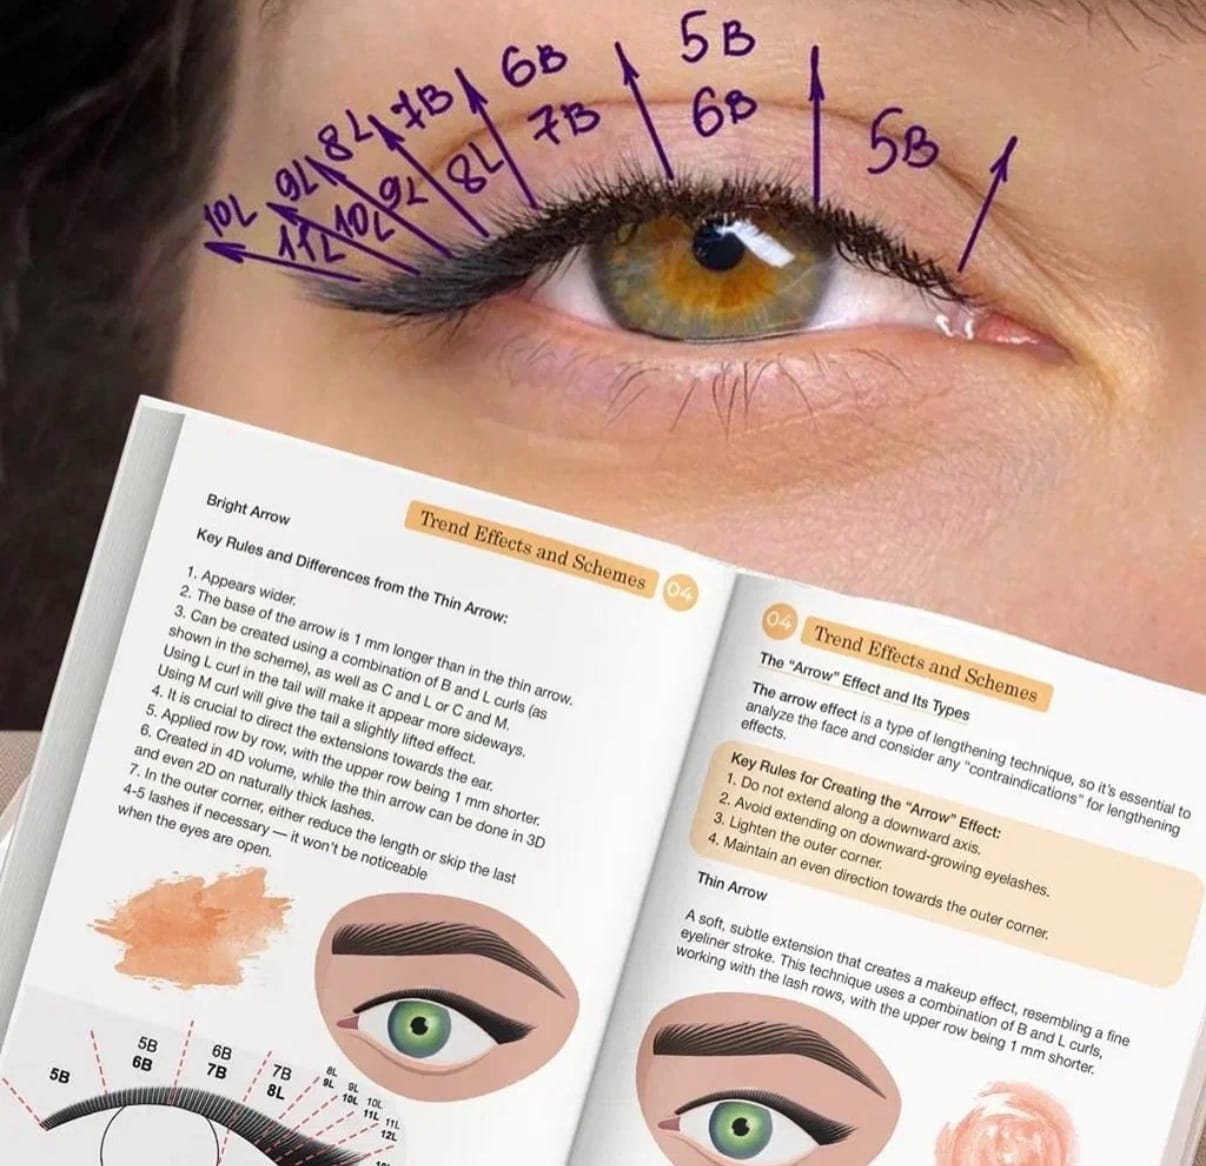 5B
6B
5B
6B
7B
7B
8L
8L
9L
9L
10L
10L
11L
5B
Bright Arrow
Trend Effects and Schemes 04
Key Rules and Differences from the Thin Arrow:
1. Appears wider.
2. The base of the arrow is 1 mm longer than in the thin arrow.
3. Can be created using a combination of B and L curls (as
shown in the scheme), as well as C and L or C and M.
Using L curl in the tail will make it appear more sideways.
Using M curl will give the tail a slightly lifted effect.
4. It is crucial to direct the extensions towards the ear.
5. Applied row by row, with the upper row being 1 mm shorter.
6. Created in 4D volume, while the thin arrow can be done in 3D
and even 2D on naturally thick lashes.
7. In the outer corner, either reduce the length or skip the last
4-5 lashes if necessary — it won't be noticeable
when the eyes are open.
5B
5B
6B
6B
7B
7B
8L
8L
9L
9L
10L
10L
11L
11L
12L
04 Trend Effects and Schemes
The “Arrow” Effect and Its Types
The arrow effect is a type of lengthening technique, so it's essential to
analyze the face and consider any “contraindications” for lengthening
effects.
Key Rules for Creating the “Arrow” Effect:
1. Do not extend along a downward axis.
2. Avoid extending on downward-growing eyelashes.
3. Lighten the outer corner.
4. Maintain an even direction towards the outer corner.
Thin Arrow
A soft, subtle extension that creates a makeup effect, resembling a fine
eyeliner stroke. This technique uses a combination of B and L curls,
working with the lash rows, with the upper row being 1 mm shorter.